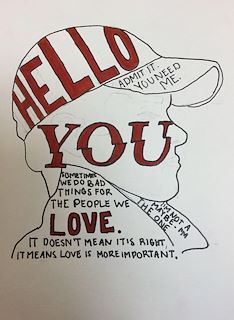 HELLO
ADMIT IT.
YOU NEED
ME.
YOU
SOMETIMES
WE DO BAD
THINGS FOR
THE PEOPLE WE
LOVE.
IT DOESN'T MEAN IT'S RIGHT,
IT MEANS LOVE IS MORE IMPORTANT.
I'M NOT A
MAYBE. I AM
THE ONE.